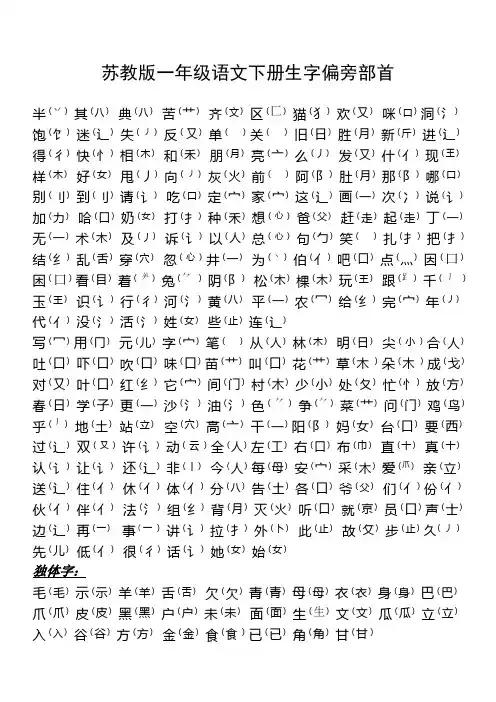 苏教版一年级语文下册生字偏旁部首
半(丷) 其(八) 典(八) 苦(艹) 齐(文) 区(匚) 猫(犭) 欢(又) 咪(口) 洞(氵)
饱(饣) 迷(辶) 失(丿) 反(又) 单( ) 关( ) 旧(日) 胜(月) 新(斤) 进(辶)
得(彳) 快(忄) 相(木) 和(禾) 朋(月) 亮(亠) 么(丿) 发(又) 什(亻) 现(王)
样(木) 好(女) 甩(丿) 向(丿) 灰(火) 前( ) 阿(阝) 肚(月) 那(阝) 哪(口)
别(刂) 到(刂) 请(讠) 吃(口) 定(宀) 家(宀) 这(辶) 画(一) 次(冫) 说(讠)
加(力) 哈(口) 奶(女) 打(扌) 种(禾) 想(心) 爸(父) 赶(走) 起(走) 丁(一)
无(一) 术(木) 及(丿) 诉(讠) 以(人) 总(心) 句(勹) 笑( ) 扎(扌) 把(扌)
结(纟) 乱(舌) 穿(穴) 忽(心) 井(一) 为(丶) 伯(亻) 吧(口) 点(灬) 因(囗)
困(囗) 看(目) 着() 兔(⺈) 阴(阝) 松(木) 棵(木) 玩(王) 跟() 千(丿)
玉(王) 识(讠) 行(彳) 河(氵) 黄(八) 平(一) 农(冖) 给(纟) 完(宀) 年(丿)
代(亻) 没(氵) 活(氵) 姓(女) 些(止) 连(辶)
写(冖) 用(冂) 元(儿) 字(宀) 笔( ) 从(人) 林(木) 明(日) 尖(小) 合(人)
吐(口) 吓(口) 吹(口) 味(口) 苗(艹) 叫(口) 花(艹) 草(木) 朵(木) 成(戈)
对(又) 叶(口) 红(纟) 它(宀) 间(门) 村(木) 少(小) 处(夂) 忙(忄) 放(方)
春(日) 学(子) 更(一) 沙(氵) 油(氵) 色(⺈) 争(⺈) 菜(艹) 问(门) 鸡(鸟)
乎(丿) 地(土) 站(立) 空(穴) 高(亠) 干(一) 阳(阝) 妈(女) 台(口) 要(西)
过(辶) 双(又) 许(讠) 动(云) 全(人) 左(工) 右(口) 布(巾) 直(十) 真(十)
认(讠) 让(讠) 还(辶) 非(丨) 今(人) 每(母) 安(宀) 采(木) 爱(爫) 亲(立)
送(辶) 住(亻) 休(亻) 体(亻) 分(八) 告(土) 各(口) 爷(父) 们(亻) 份(亻)
伙(亻) 伴(亻) 法(氵) 组(纟) 背(月) 灭(火) 听(口) 就(京) 员(口) 声(士)
边(辶) 再(一) 事(一) 讲(讠) 拉(扌) 外(卜) 此(止) 故(攵) 步(止) 久(丿)
先(儿) 低(亻) 很(彳) 话(讠) 她(女) 始(女)
独体字：
毛(毛) 示(示) 羊(羊) 舌(舌) 欠(欠) 青(青) 母(母) 衣(衣) 身(身) 巴(巴)
爪(爪) 皮(皮) 黑(黑) 户(户) 未(未) 面(面) 生(生) 文(文) 瓜(瓜) 立(立)
入(入) 谷(谷) 方(方) 金(金) 食(食) 已(已) 角(角) 甘(甘)